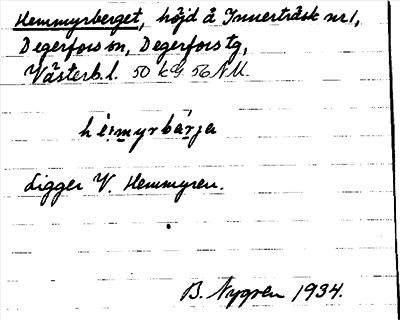 Hemmyrberget, höjd å Innerträsk nr 1,
Degerfors sn, Degerfors tg,
Västerb. l. 50 kG 56 NM.
hèmyrbärja
Ligger V. Hemmyren.
B. Nygren 1934.